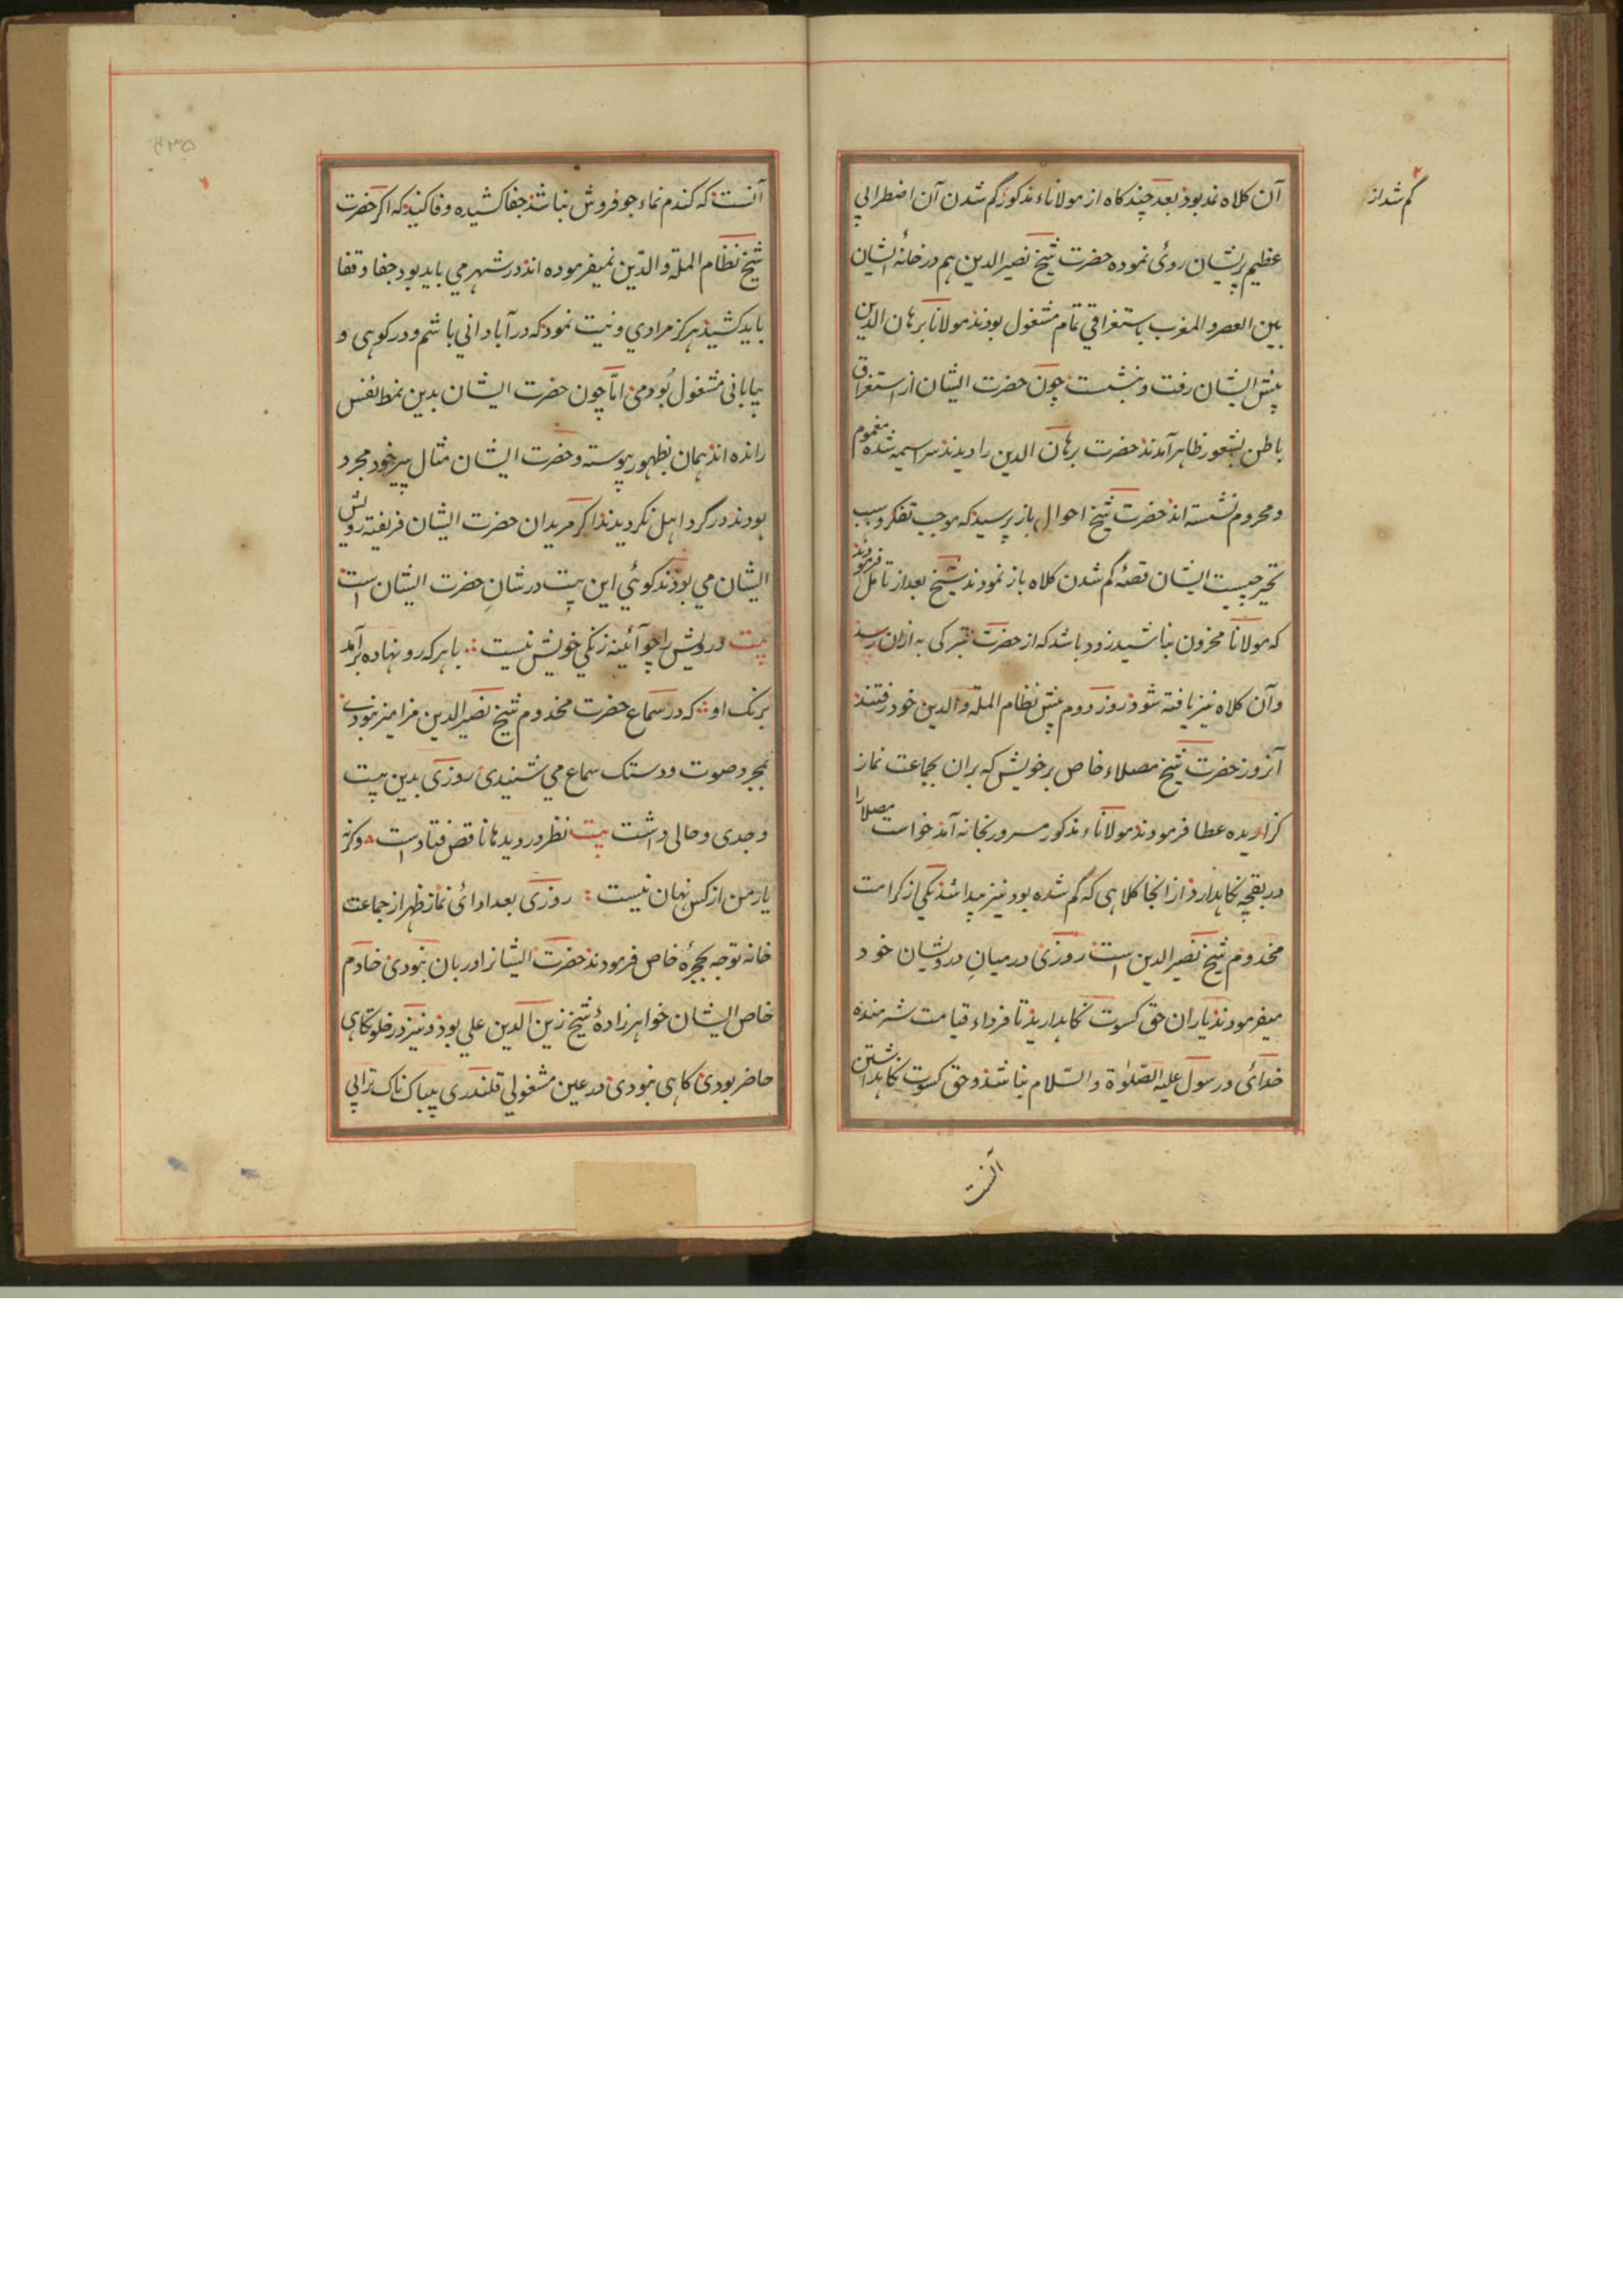 آن کلاه نمد بود بعد چند کاه از مولاناء مذکور کم شدن آن اضطرابی
کم شد از
عظیم بریشان روئی نموده حضرت شیخ نصیر الدین هم در خانهٔ ایشان
بین العصر و المغرب باستغراقی تمام مشغول بودند مولانا برهان الدین
پیش ایشان رفت و بنشست چون حضرت ایشان از استغراق
باطن بشعور ظاهر آمدند حضرت برهان الدین را دیدند سراسیمه شده مغموم
و محروم نشسته اند حضرت شیخ احوال باز پرسید که موجب تفکر و سبب
تحیر چیست ایشان قصهٔ کم شدن کلاه باز نمودند شیخ بعد از تامل فرمودند
که مولانا محزون نباشید زود باشد که از حضرت تبرکی به ازان رسد
و آن کلاه نیز یافته شود روز دوم پیش نظام الملة والدین خود رفتند
آنروز حضرت شیخ مصلاء خاص بر خویش که بران بجماعت نماز
کزاریده عطا فرمودند مولاناء مذکور مسرور بخانه آمد خواست مصلا را
در بقچه نکاهدارد از انجا کلاهی که کم شده بود نیز پیدا شد یکی از کرامت
مخدوم شیخ نصیر الدین است روزی در میانِ درویشان خود
میفرمودند یاران حق کسوت نکاهدارید تا فرداء قیامت شرمنده
خدائی و رسول علیه الصلوٰة والسّلام نباشد و حق کسوت نکاهداشتن
آنست
آنست که کندم نماء جو فروش نباشد جفا کشیده وفا کنید که اکر حضرت
شیخ نظام الملة والدّین نمیفرموده اند در شهر می باید بود جفا و قفا
باید کشید هرکز مرادی و نیت نمود که در آبادانی باشم و در کوهی و
بیابانی مشغول بُودمی امّا چون حضرت ایشان بدین نمط نفس
رانده اند همان بظهور پیوسته و حضرت ایشان مثال پیر خود مجرد
بودند در کرد اهل نکردیدند اکر مریدان حضرت ایشان فریفته روش
ایشان می بودند کوئی این بیت در شانِ حضرت ایشان است
بیت درویش را چو آئینه زنکی خویش نیست ∴ با هر که رو نهاده برآمد
برنک او ∴ که در سماع حضرت مخدوم شیخ نصیر الدین مزامیر نبودی
بمجرد صوت و دستک سماع می شنیدی روزی بدین بیت
وجدی و حالی داشت بیت نظر در دیدها ناقص فتاد است وکرنه
یار من از کس نهان نیست : روزی بعد ادائی نماز ظهر از جماعت
خانه توجه بحجرهٔ خاص فرمودند حضرت ایشانرا دربان نبودی خادم
خاص ایشان خواهر زادهٔ شیخ زین الدین علی بود و نیز در خلوتکاهی
حاضر بودی کاهی نبودی در عین مشغولی قلندری بیباک ناک ترابی